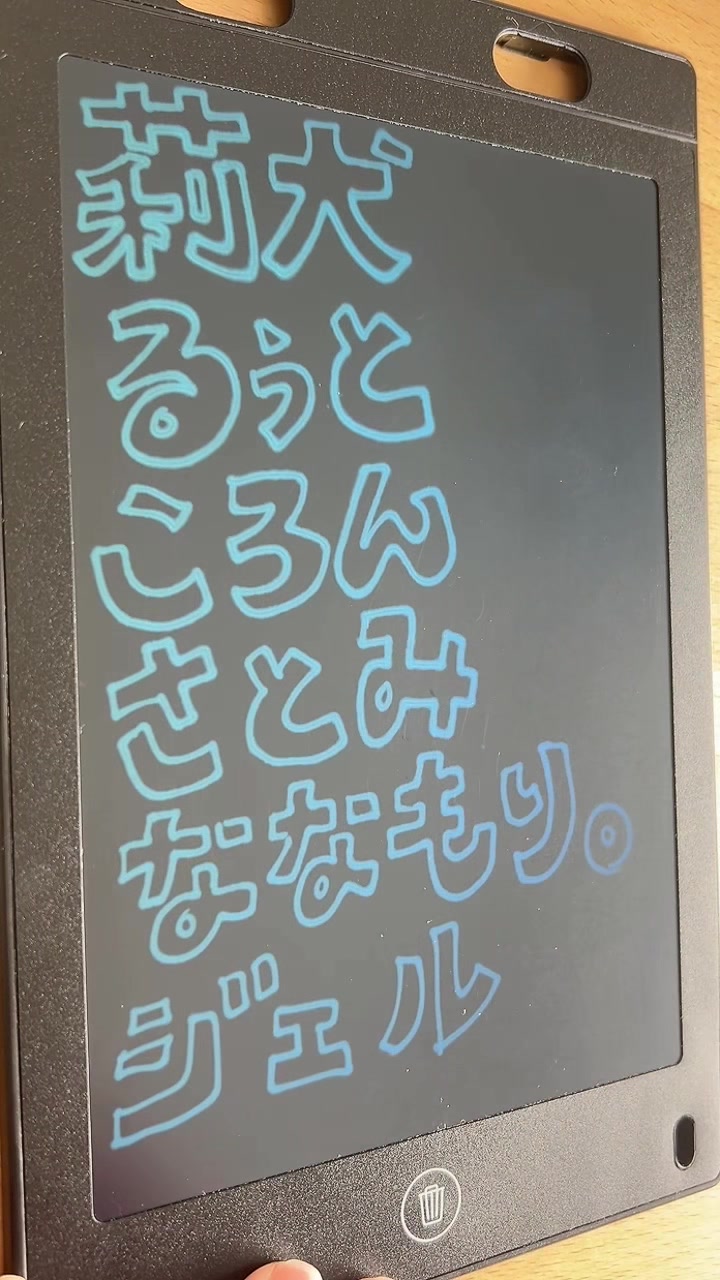 莉犬
るぅと
ころん
さとみ
ななもり。
ジェル